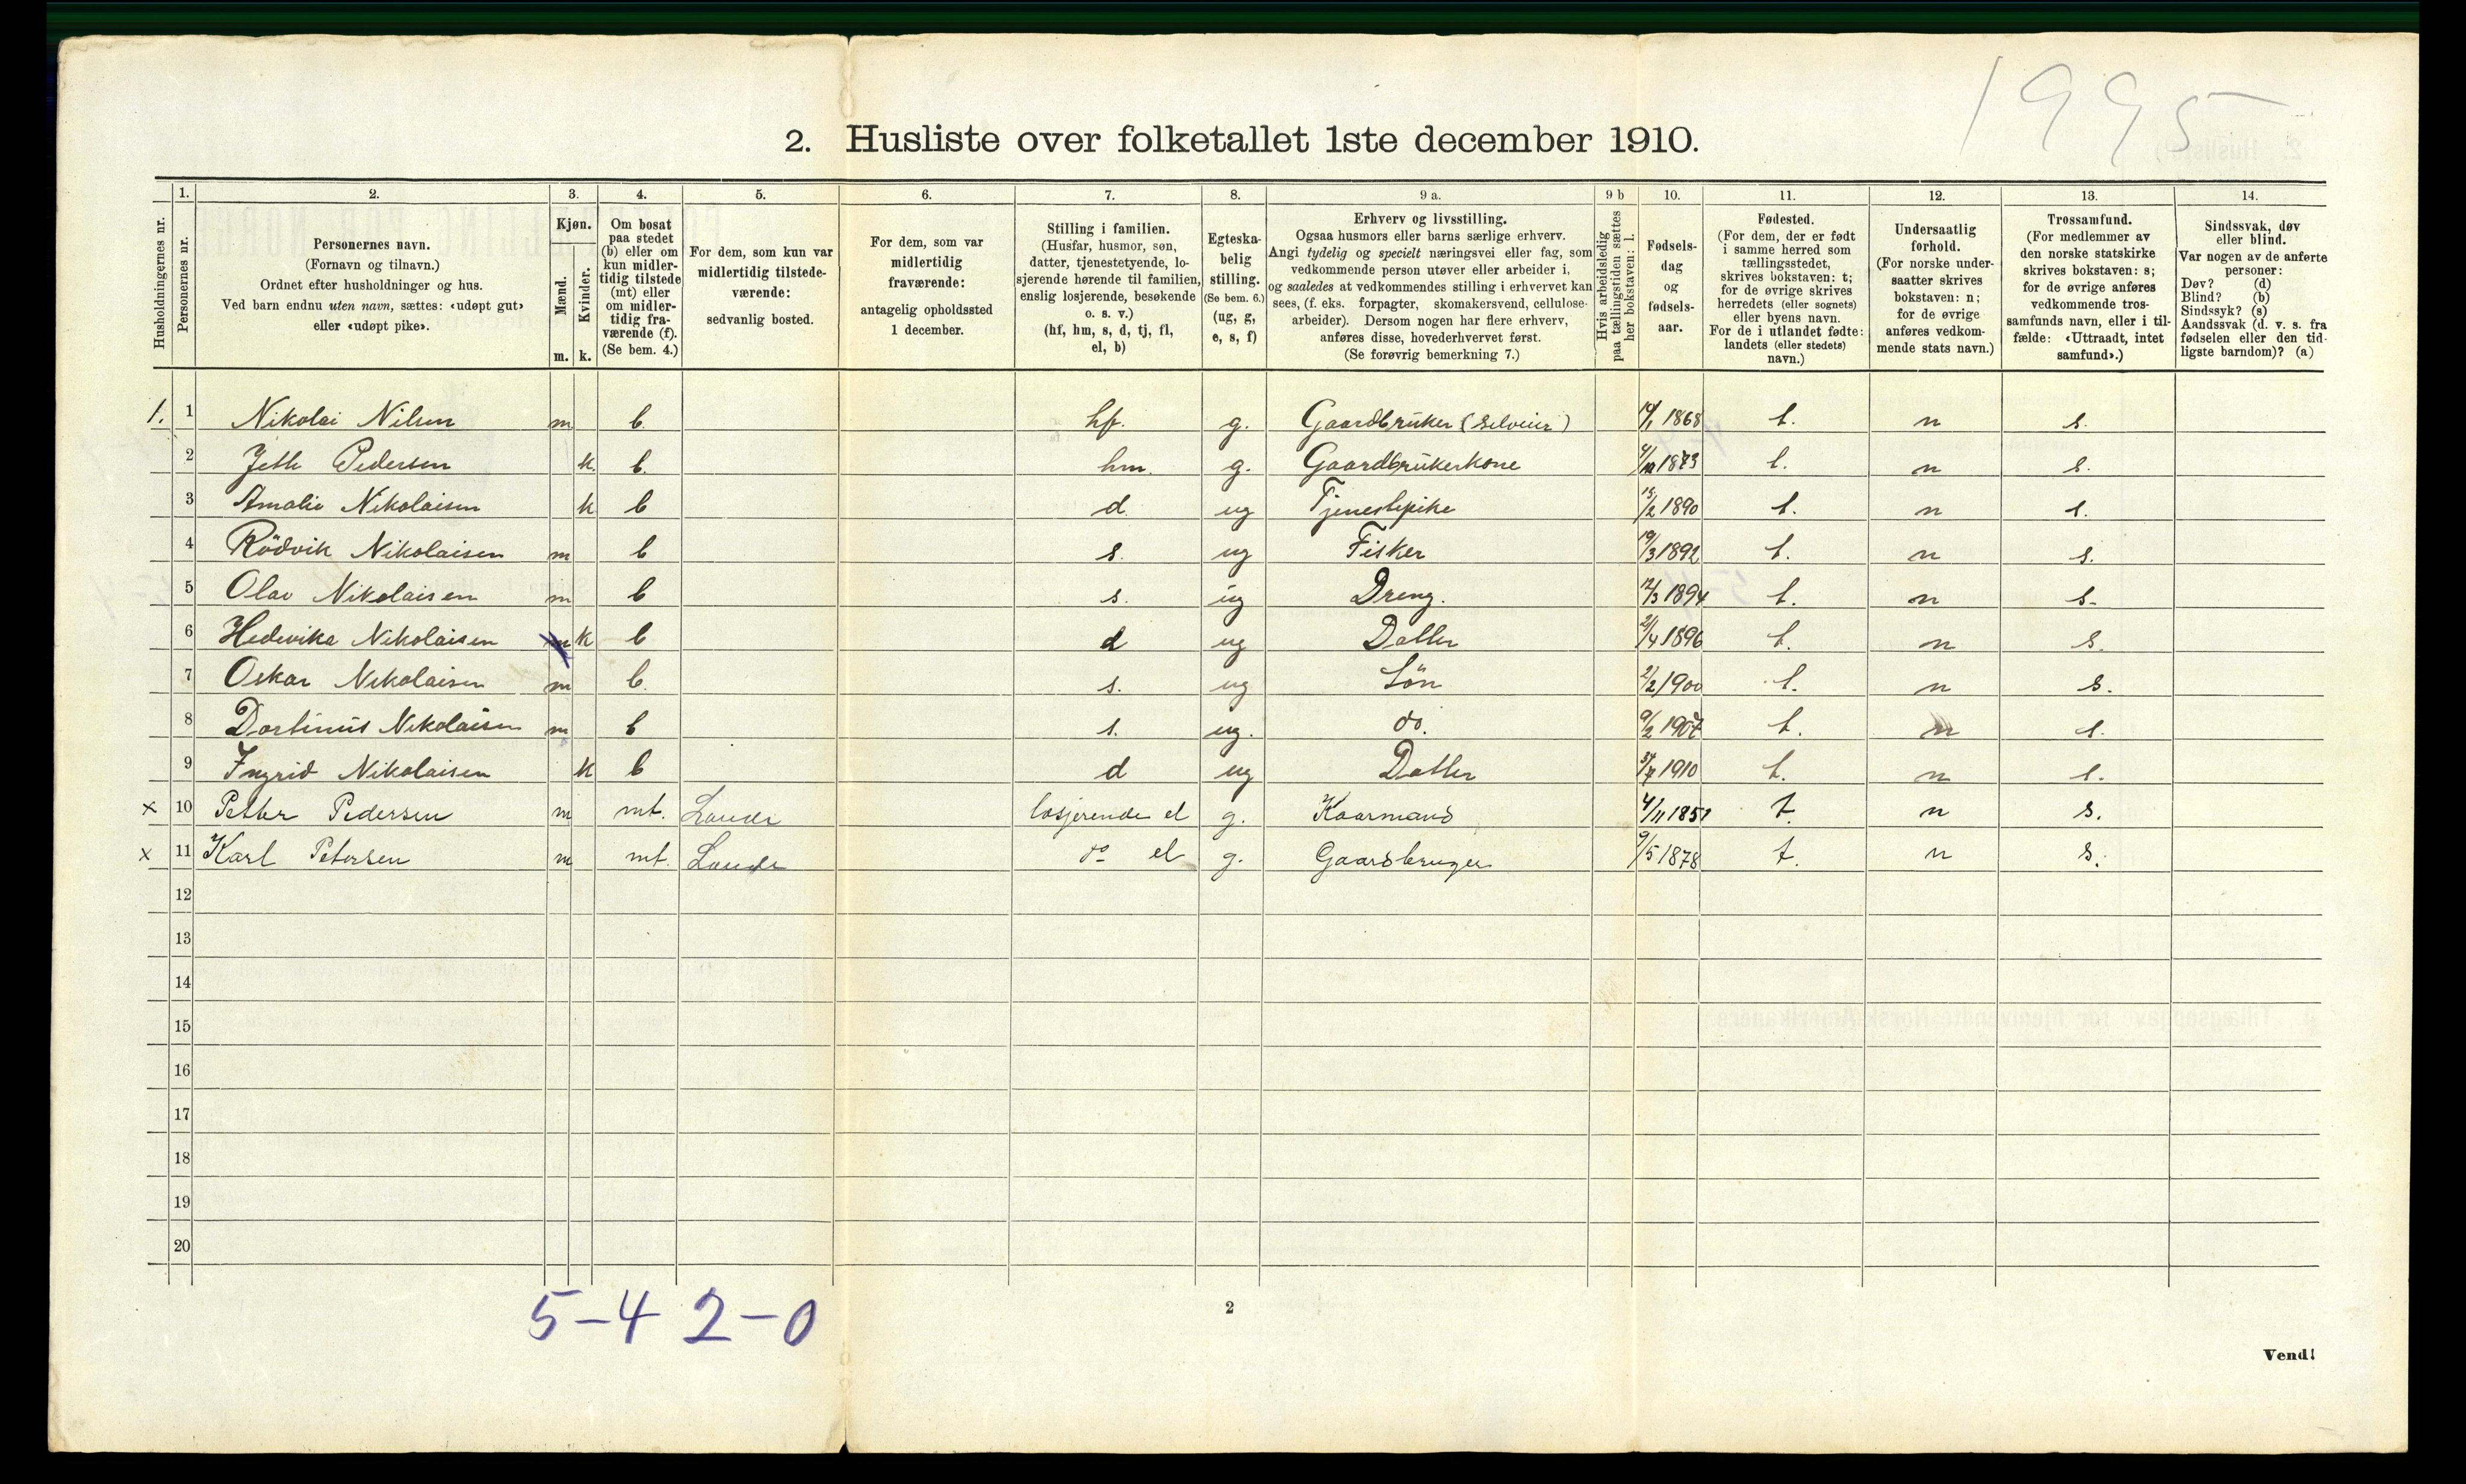 1995
2. Husliste over folketallet 1ste december 1910.
1. 2. 3. 4. 5. 6. 7. 8. 9 a. 9 b 10. 11. 12. 13. 14.
Husholdningernes nr.
Personernes nr.
Personernes navn.
(Fornavn og tilnavn.)
Ordnet efter husholdninger og hus.
Ved barn endnu uten navn, sættes: «udøpt gut»
eller «udøpt pike».
Kjøn.
Mænd.
Kvinder.
m. k.
Om bosat
paa stedet
(b) eller om
kun midler-
tidig tilstede
(mt) eller
om midler-
tidig fra-
værende (f).
(Se bem. 4.)
For dem, som kun var
midlertidig tilstede-
værende:
sedvanlig bosted.
For dem, som var
midlertidig
fraværende:
antagelig opholdssted
1 december.
Stilling i familien.
(Husfar, husmor, søn,
datter, tjenestetyende, lo-
sjerende hørende til familien,
enslig losjerende, besøkende
o. s. v.)
(hf, hm, s, d, tj, fl,
el, b)
Egteska-
belig
stilling.
(Se bem. 6.)
(ug, g,
e, s, f)
Erhverv og livsstilling.
Ogsaa husmors eller barns særlige erhverv.
Angi tydelig og specielt næringsvei eller fag, som
vedkommende person utøver eller arbeider i,
og saaledes at vedkommendes stilling i erhvervet kan
sees, (f. eks. forpagter, skomakersvend, cellulose-
arbeider). Dersom nogen har flere erhverv,
anføres disse, hovederhvervet først.
(Se forøvrig bemerkning 7.)
Hvis arbeidsledig
paa tællingstiden sættes
her bokstaven: l.
Fødsels-
dag
og
fødsels-
aar.
Fødested.
(For dem, der er født
i samme herred som
tællingsstedet,
skrives bokstaven: t;
for de øvrige skrives
herredets (eller sognets)
eller byens navn.
For de i utlandet fødte:
landets (eller stedets)
navn.)
Undersaatlig
forhold.
(For norske under-
saatter skrives
bokstaven: n;
for de øvrige
anføres vedkom-
mende stats navn.)
Trossamfund.
(For medlemmer av
den norske statskirke
skrives bokstaven: s;
for de øvrige anføres
vedkommende tros-
samfunds navn, eller i til-
fælde: «Uttraadt, intet
samfund».)
Sindssvak, døv
eller blind.
Var nogen av de anførte
personer:
Døv? (d)
Blind? (b)
Sindssyk? (s)
Aandssvak (d. v. s. fra
fødselen eller den tid-
ligste barndom)? (a)
1. 1 Nikolai Nilsen m b. hf. g. Gaardbruker (Selveier) 1868 t. n s.
2 Jette Pedersen k. b. hm. g. Gaardbrukerkone 1873 t. n s.
3 Amalie Nikolaisen k b d. ug Tjenestepike 15/2 1890 t. n s.
4 Rödvik Nikolaisen m b s. ug Fisker 19/3 1892 t. n s.
5 Olav Nikolaisen m b s. ug Dreng. 12/3 1894 t. n s.
6 Hedevika Nikolaisen k b d ug Datter 21/4 1896 t. n s.
7 Oskar Nikolaisen m b. s. ug Sön 2/2 1900 t. n s.
8 Dortinus Nikolaisen m b s. ug. do. 9/2 1907 t. n s.
9 Ingrid Nikolaisen k b d ug Datter 1910 t. n s.
x 10 Petter Pedersen m mt. losjerende el g. Kaarmand 4/11 1851 t. n s.
x 11 Karl Petersen m mt. do el g. Gaardbruger 9/5 1878 t. n s.
12
13
14
15
16
17
18
19
20
5-4 2-0
2
Vend!